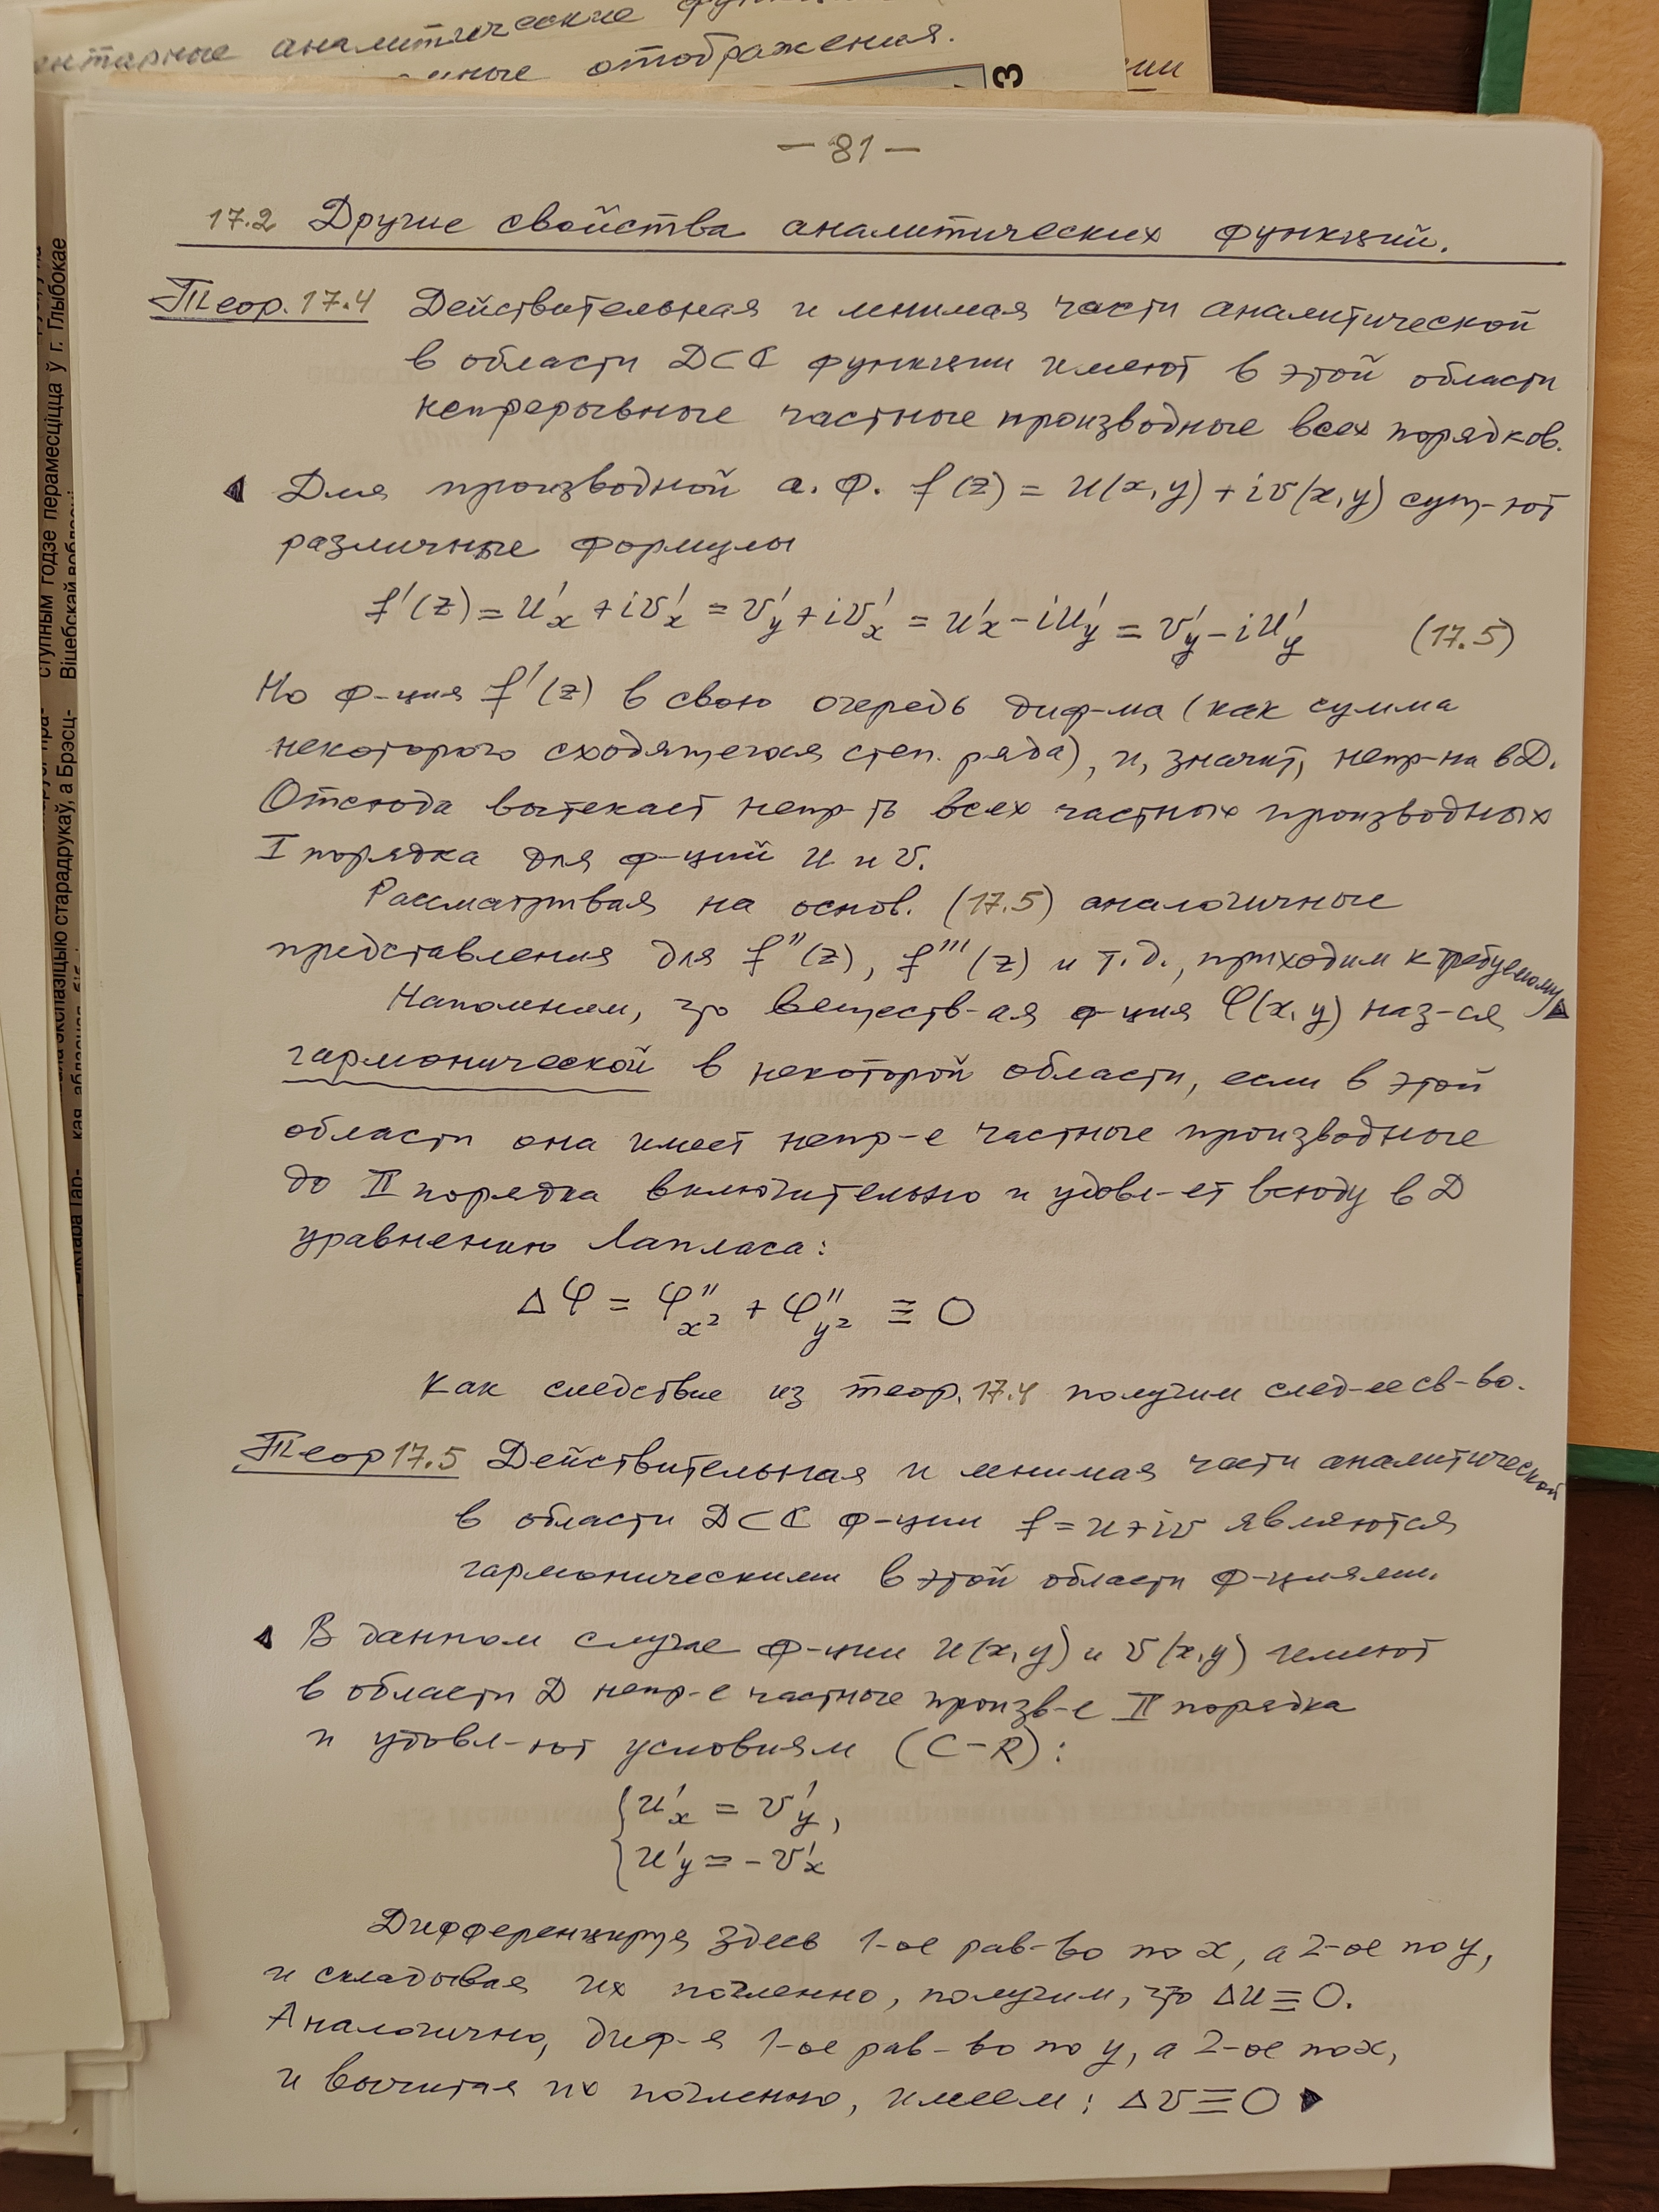 ентарные аналитические
отображения.
3
ции
— 81 —
17.2 Другие свойства аналитических функций.
Теор. 17.4 Действительная и мнимая части аналитической
в области D⊂ℂ функции имеют в этой области
непрерывные частные производные всех порядков.
Для производной а. ф. f(z) = u(x,y) + iv(x,y) сущ-ют
различные формулы
f'(z) = u'ₓ + iv'ₓ = v'_y + iv'ₓ = u'ₓ - iu'_y = v'_y - iu'_y (17.5)
Но ф-ция f'(z) в свою очередь диф-ма (как сумма
некоторого сходящегося степ. ряда), и, значит, непр-на в D.
Отсюда вытекает непр-ть всех частных производных
I порядка для ф-ций u и v.
Рассматривая на основ. (17.5) аналогичные
представления для f''(z), f'''(z) и т.д., приходим к требуемому
Напомним, что веществ-ая ф-ция φ(x,y) наз-ся
гармонической в некоторой области, если в этой
области она имеет непр-е частные производные
до II порядка включительно и удовл-ет всюду в D
уравнению Лапласа:
Δφ = φ''_{x²} + φ''_{y²} ≡ 0
Как следствие из теор. 17.4 получим след-ее св-во.
Теор 17.5 Действительная и мнимая части аналитической
в области D⊂ℂ ф-ции f = u+iv являются
гармоническими в этой области ф-циями.
В данном случае ф-ции u(x,y) и v(x,y) имеют
в области D непр-е частные произв-е II порядка
и удовл-ют условиям (C-R):
{u'ₓ = v'_y,
{u'_y = -v'ₓ
Дифференцируя здесь 1-ое рав-во по x, а 2-ое по y,
и складывая их почленно, получим, что Δu≡0.
Аналогично, диф-я 1-ое рав-во по y, а 2-ое по x,
и вычитая их почленно, имеем: Δv≡0
ступным годзе перамесціцца ў г. Глыбокае
Віцебскай вобласці
экспазіцыю старадрукаў, а Брэсц-